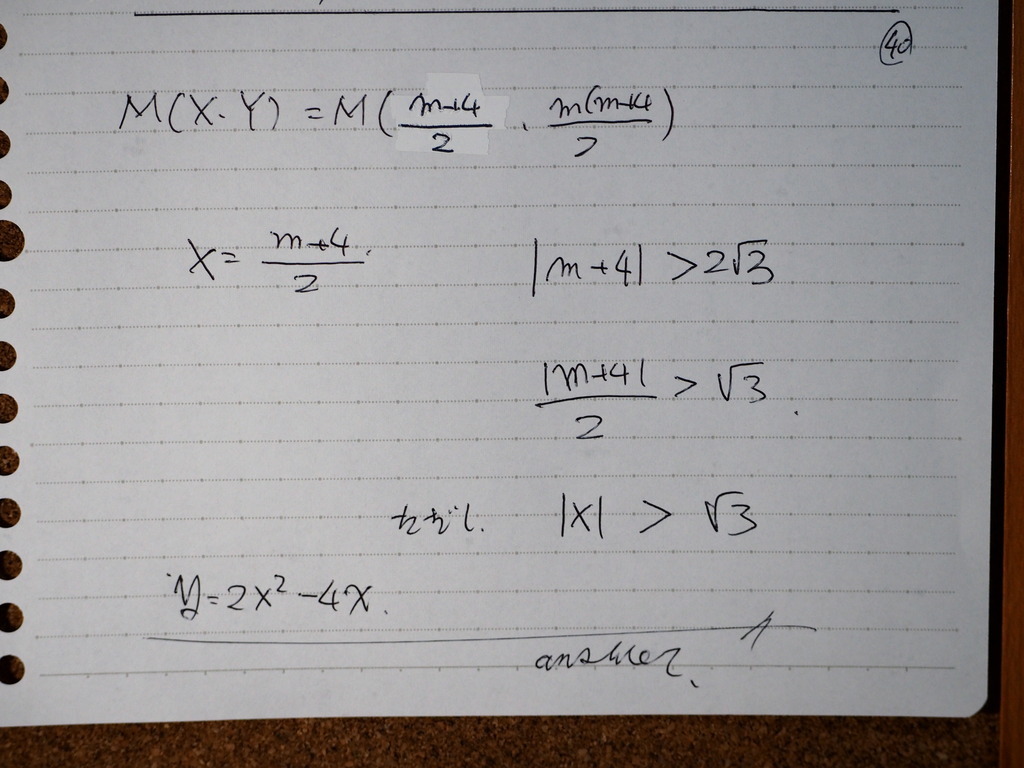 40
M(X.Y) = M(m+4/2 . m(m+4)/2)
X = m+4/2. |m+4| > 2√3
|m+4|/2 > √3.
ただし. |X| > √3
y = 2x² - 4x.
answer.